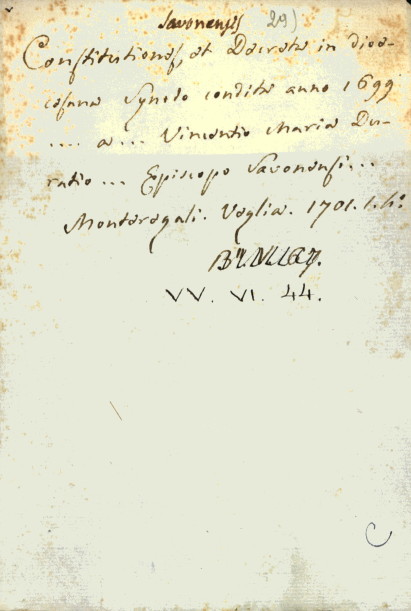 Savonensis 29)
Constitutiones, et Decreta in dioe-
cesana Synodo condita anno 1699
.... a ... Vincentio Maria Du-
ratio ... Episcopo Savonensi ...
Monteregali. Veglia. 1701. 4°
VV. VI. 44.
C